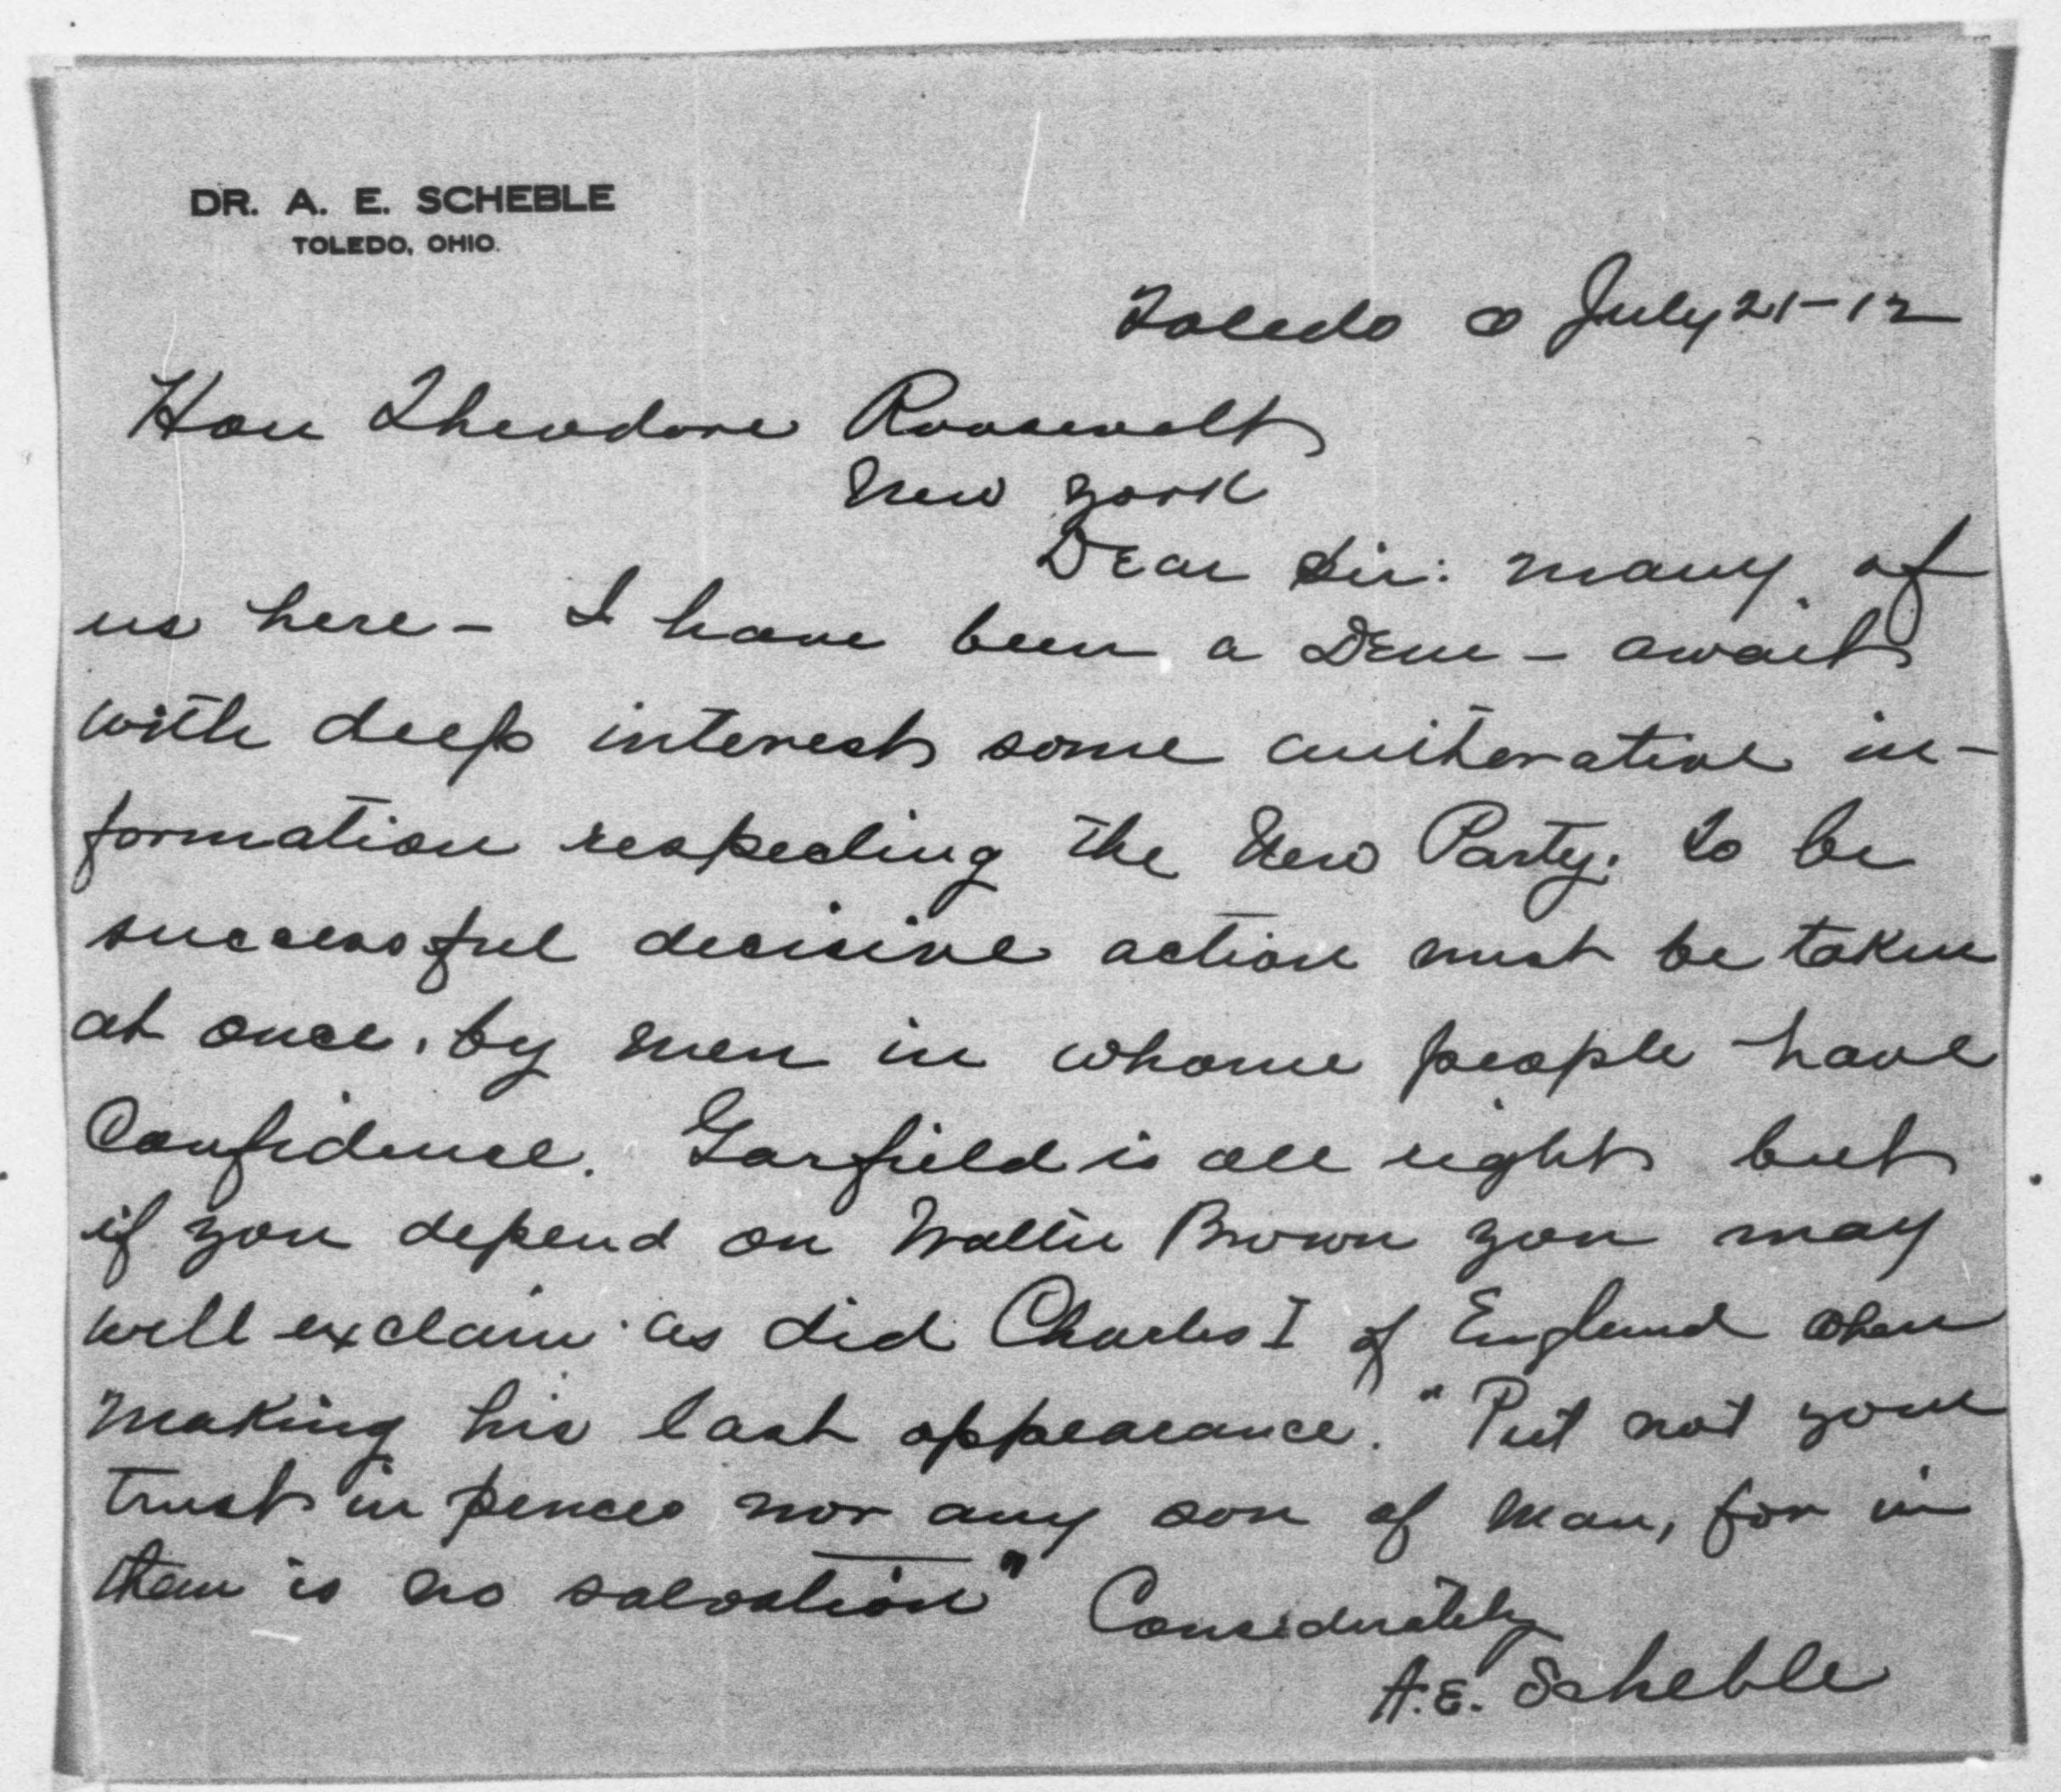 DR. A. E. SCHEBLE
TOLEDO, OHIO.
Toledo O July 21-12
Hon Theodore Roosevelt
New York
Dear Sir: many of
us here - I have been a Dem - await
with deep interest some authorative in-
formation respecting the New Party. To be
successful decisive action must be taken
at once, by men in whome people have
Confidence. Garfield is all right but
if you depend on Walter Brown you may
well exclaim as did Charles I of England when
making his last appearance. "Put not your
trust in pences nor any son of man, for in
them is no salvation"
Considerately
A.E. Scheble